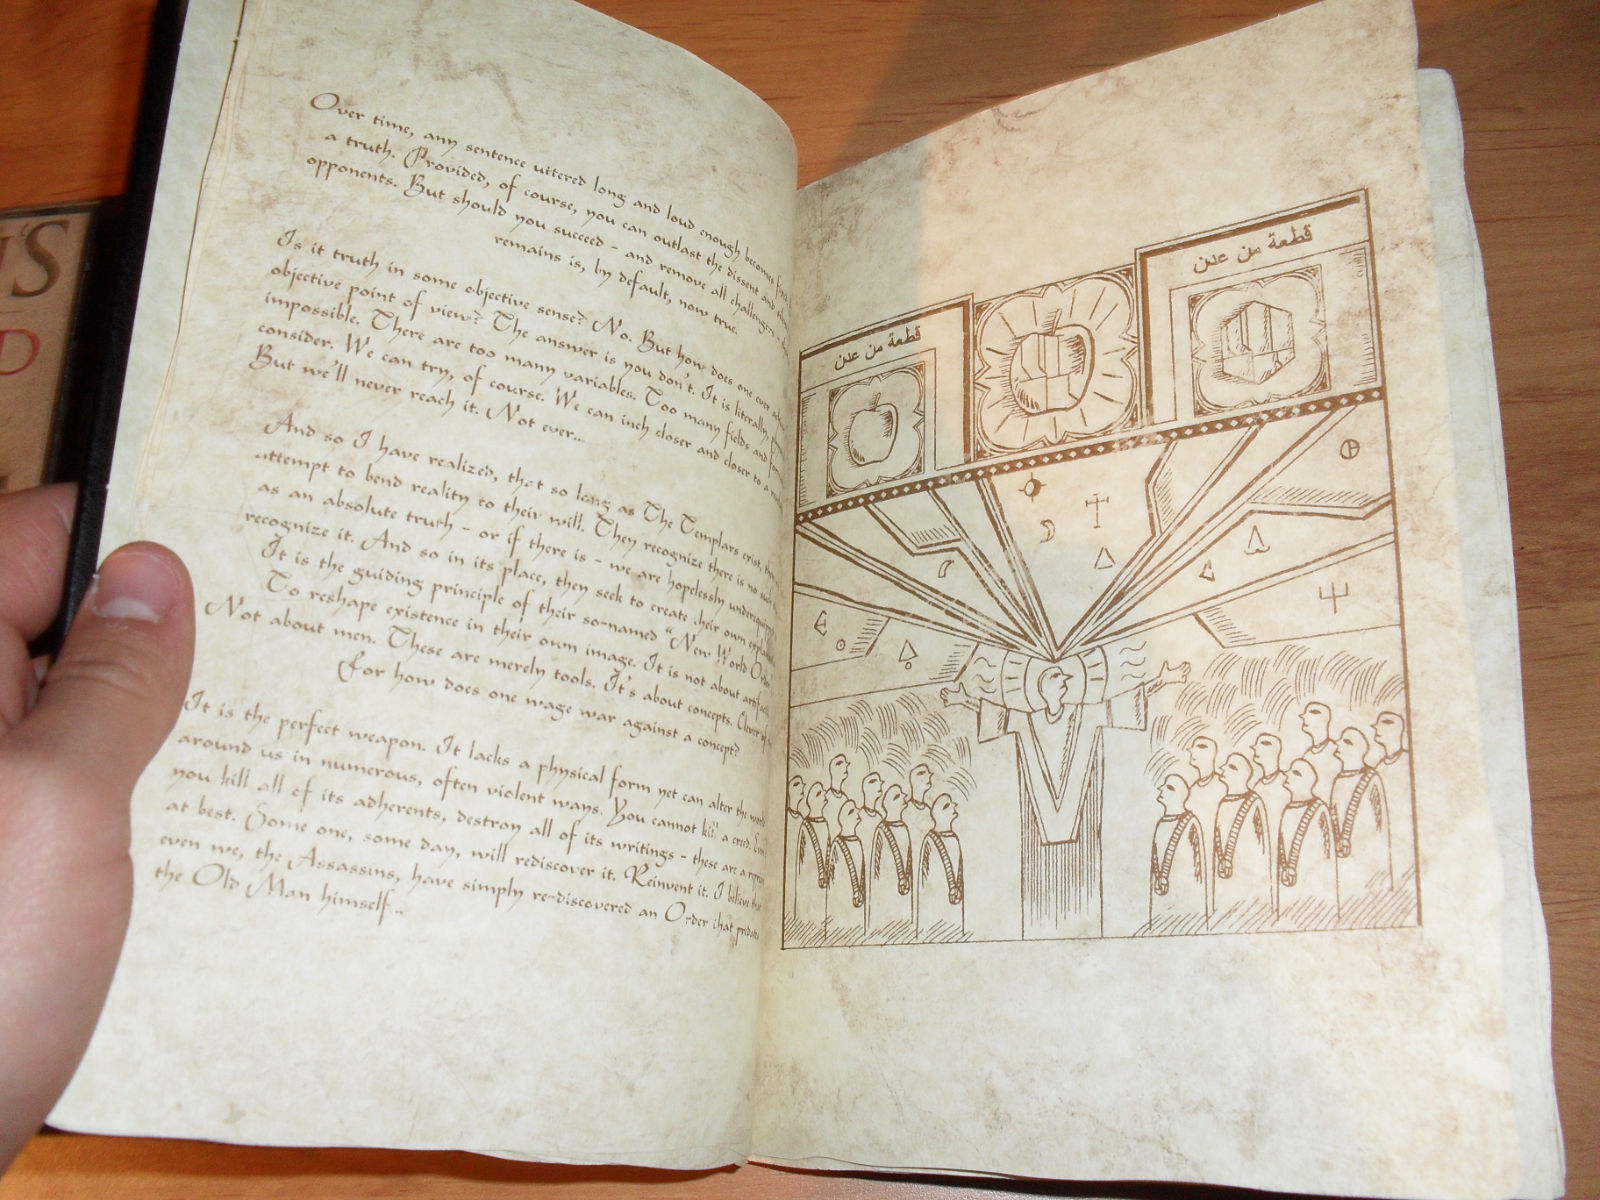 Over time, any sentence uttered long and loud enough becomes
a truth. Provided, of course, you can outlast the dissent and
opponents. But should you succeed - and remove all challengers -
remains is, by default, now true.
Is it truth in some objective sense? No. But how does one ever
objective point of view? The answer is you don't. It is literally,
impossible. There are too many variables. Too many fields and
consider. We can try, of course. We can inch closer and closer to a
But we'll never reach it. Not ever...
And so I have realized, that so long as The Templars exist, they
attempt to bend reality to their will. They recognize there is no such
as an absolute truth - or if there is - we are hopelessly
recognize it. And so in its place, then seek to create their own
It is the guiding principle of their so-named "New World Order"
To reshape existence in their own image. It is not about
Not about men. These are merely tools. It's about concepts. Clever
For how does one wage war against a concept?
It is the perfect weapon. It lacks a physical form yet can alter the world
around us in numerous, often violent ways. You cannot kill a creed. Even
you kill all of its adherents, destroy all of its writings - these are a
at best. Some one, some day, will rediscover it. Reinvent it. I believe that
even we, the Assassins, have simply re-discovered an Order that predates
the Old Man himself...
قطعة من عدن
قطعة من عدن
N'S
D